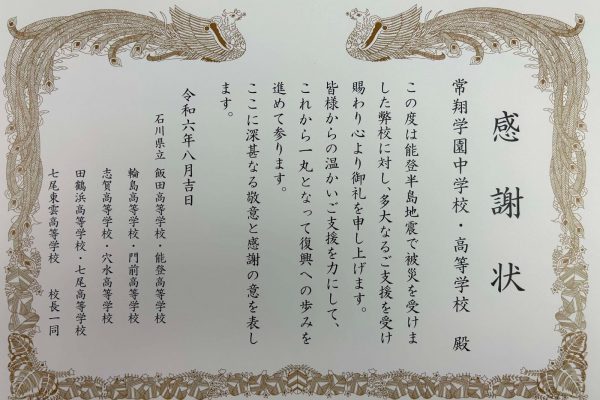 感謝状
常翔学園中学校・高等学校 殿
この度は能登半島地震で被災を受けま
した弊校に対し、多大なるご支援を受け
賜わり心より御礼を申し上げます。
皆様からの温かいご支援を力にして、
これから一丸となって復興への歩みを
進めて参ります。
ここに深甚なる敬意と感謝の意を表し
ます。
令和六年八月吉日
石川県立 飯田高等学校・能登高等学校
輪島高等学校・門前高等学校
志賀高等学校・穴水高等学校
田鶴浜高等学校・七尾高等学校
七尾東雲高等学校 校長一同